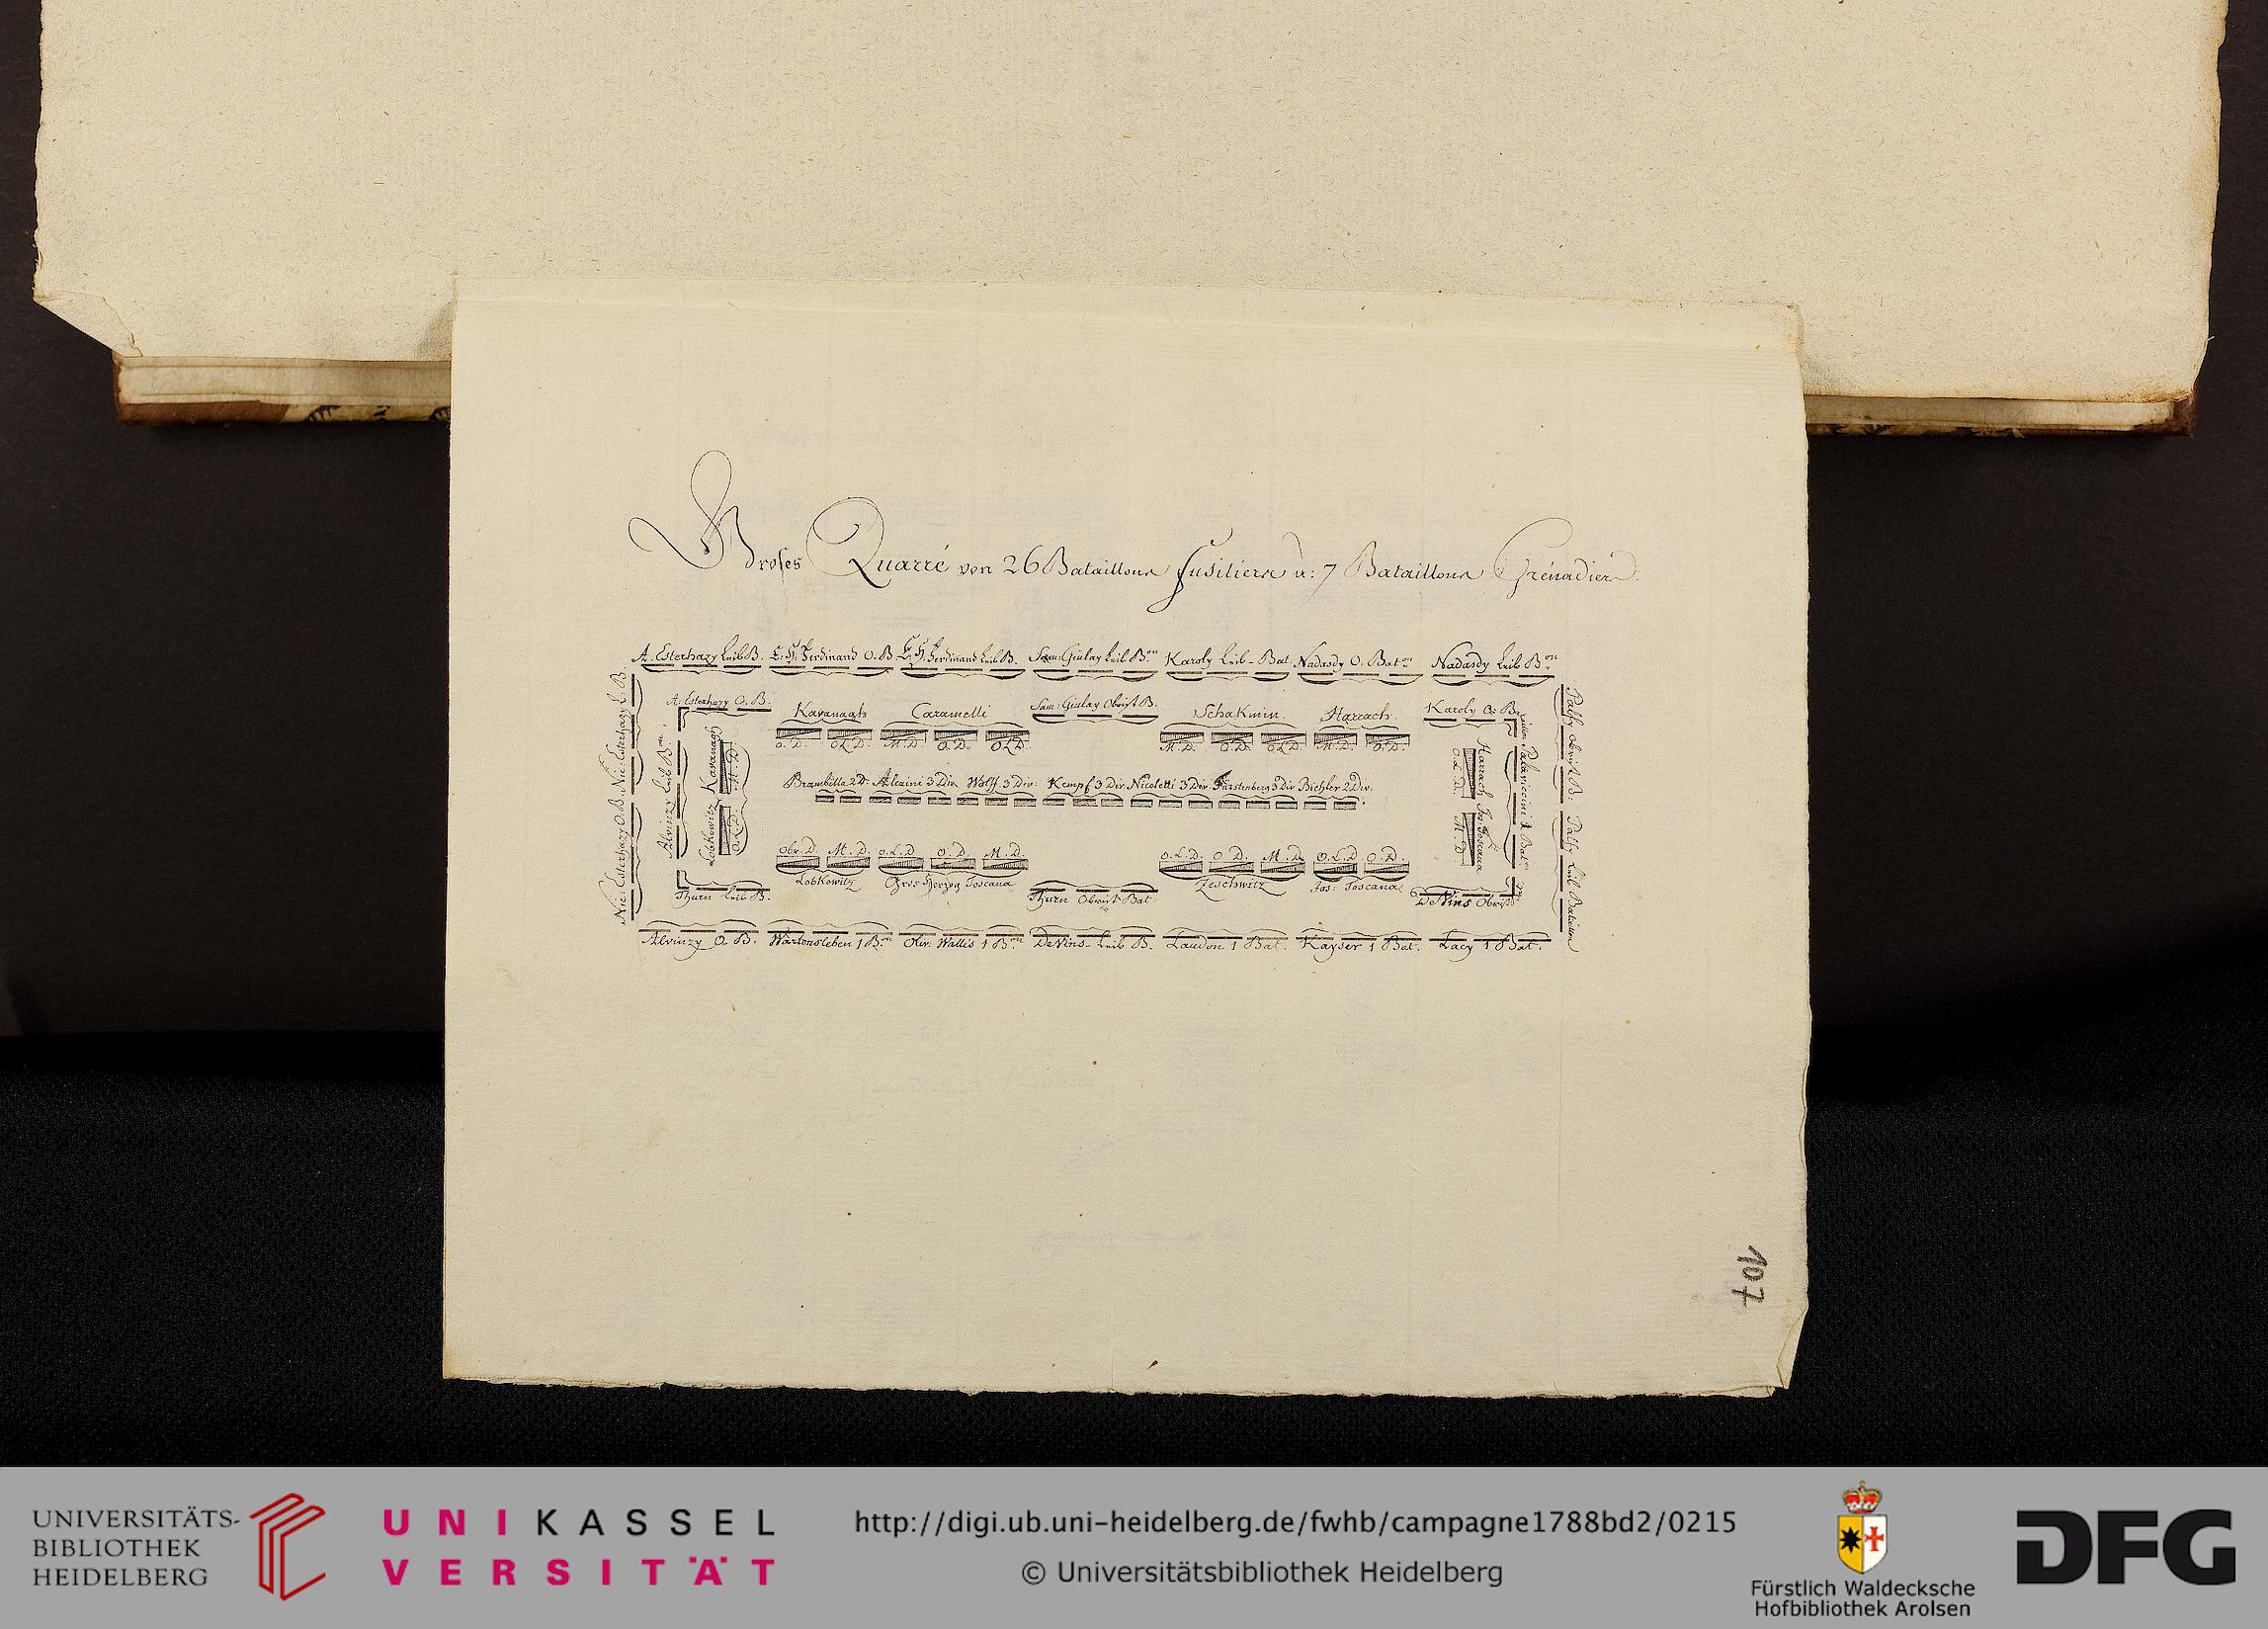 Groses Quarré von 26 Bataillons Fusiliers u: 7 Bataillons Grénadiers.
A: Esterhazy Leib B. E: H: Ferdinand O. B. E: H: Ferdinand Leib B. Sam: Giulay Leib B.on Karoly Leib-Bat: Nadasdy O: Bat.on Nadasdy Leib B.on
A: Esterhazy O. B. Kavanagh Caramelli Sam: Giulay Obrist B. Schakmin. Harrach. Karoly O: B.
O. D. O.L.D. M. D. O. D. O.L.D. M. D. O. D. O.L.D. M. D. O. D.
Nic: Esterhazy O. B. Nic: Esterhazy L. B.
Alvinzy Leib B.on
Lobkowitz Kavanagh
O. L. D. M. D.
Brambilla 2 D: Alcaini 3 Div. Wolff 3 Div: Kempf 3 Div. Nicoletti 3 Div Fürstenberg 3 Div Bichler 2 Div:
Harrach Jos: Toscana
O. L. D. M. D.
Palaviccini 1 Bat.on
Palfy Obrist B: Palfy Leib Bataillon
Obr. D. M. D. O. L. D. O. D. M. D. O. L. D. O. D. M. D. O. L. D. O. D.
Lobkowitz Gros Herzog Toscana Zeschwitz Jos: Toscana
Thurn Leib B. Thurn Obrist Bat: De Vins Obrist
Alvinzy O. B. Wartensleben 1 B.on Oliv: Wallis 1 B.on De Vins Leib B. Laudon 1 Bat: Kayser 1 Bat: Lacy 1 Bat.
107
UNIVERSITÄTS-
BIBLIOTHEK
HEIDELBERG
UNIKASSEL
VERSITÄT
http://digi.ub.uni-heidelberg.de/fwhb/campagne1788bd2/0215
© Universitätsbibliothek Heidelberg
Fürstlich Waldecksche
Hofbibliothek Arolsen
DFG